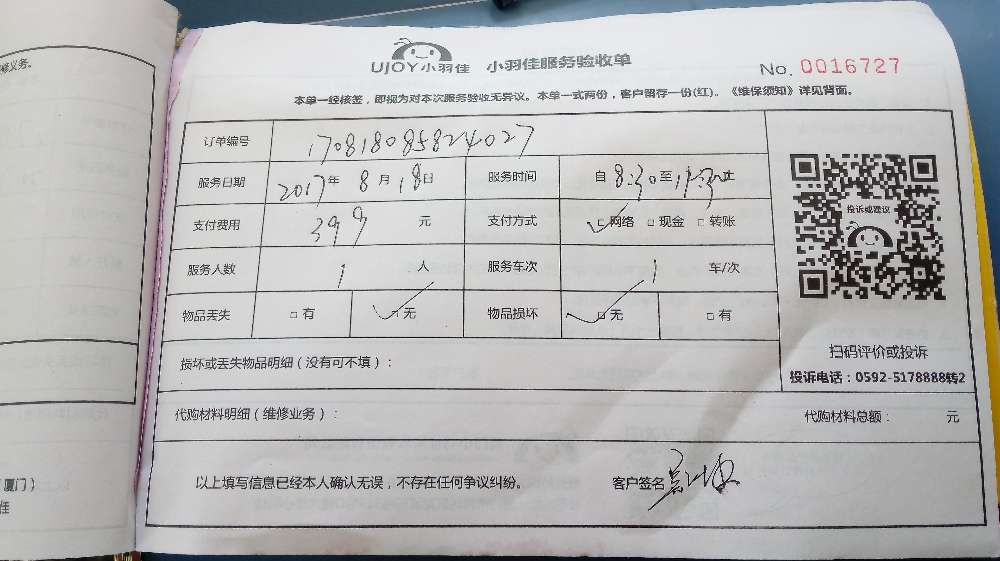 修义务。
UJOY小羽佳 小羽佳服务验收单
No. 0016727
本单一经核签，即视为对本次服务验收无异议。本单一式两份，客户留存一份(红)。《维保须知》详见背面。
订单编号 170818085824027
服务日期 2017年8月18日 服务时间 自8:30至 止
支付费用 399 元 支付方式 □网络 □现金 □转账
投诉或建议
服务人数 1 人 服务车次 1 车/次
物品丢失 □有 □无 物品损坏 □无 □有
扫码评价或投诉
损坏或丢失物品明细（没有可不填）：
投诉电话：0592-5178888转2
代购材料明细（维修业务）： 代购材料总额： 元
以上填写信息已经本人确认无误，不存在任何争议纠纷。 客户签名
厦门）
任